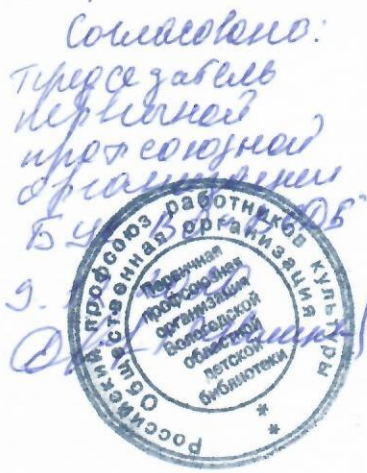 Согласовано:
председатель
первичной
профсоюзной
организации
Российский профсоюз работников культуры
Общественная организация
Первичная
профсоюзная
организация
Вологодской
областной
детской
библиотеки